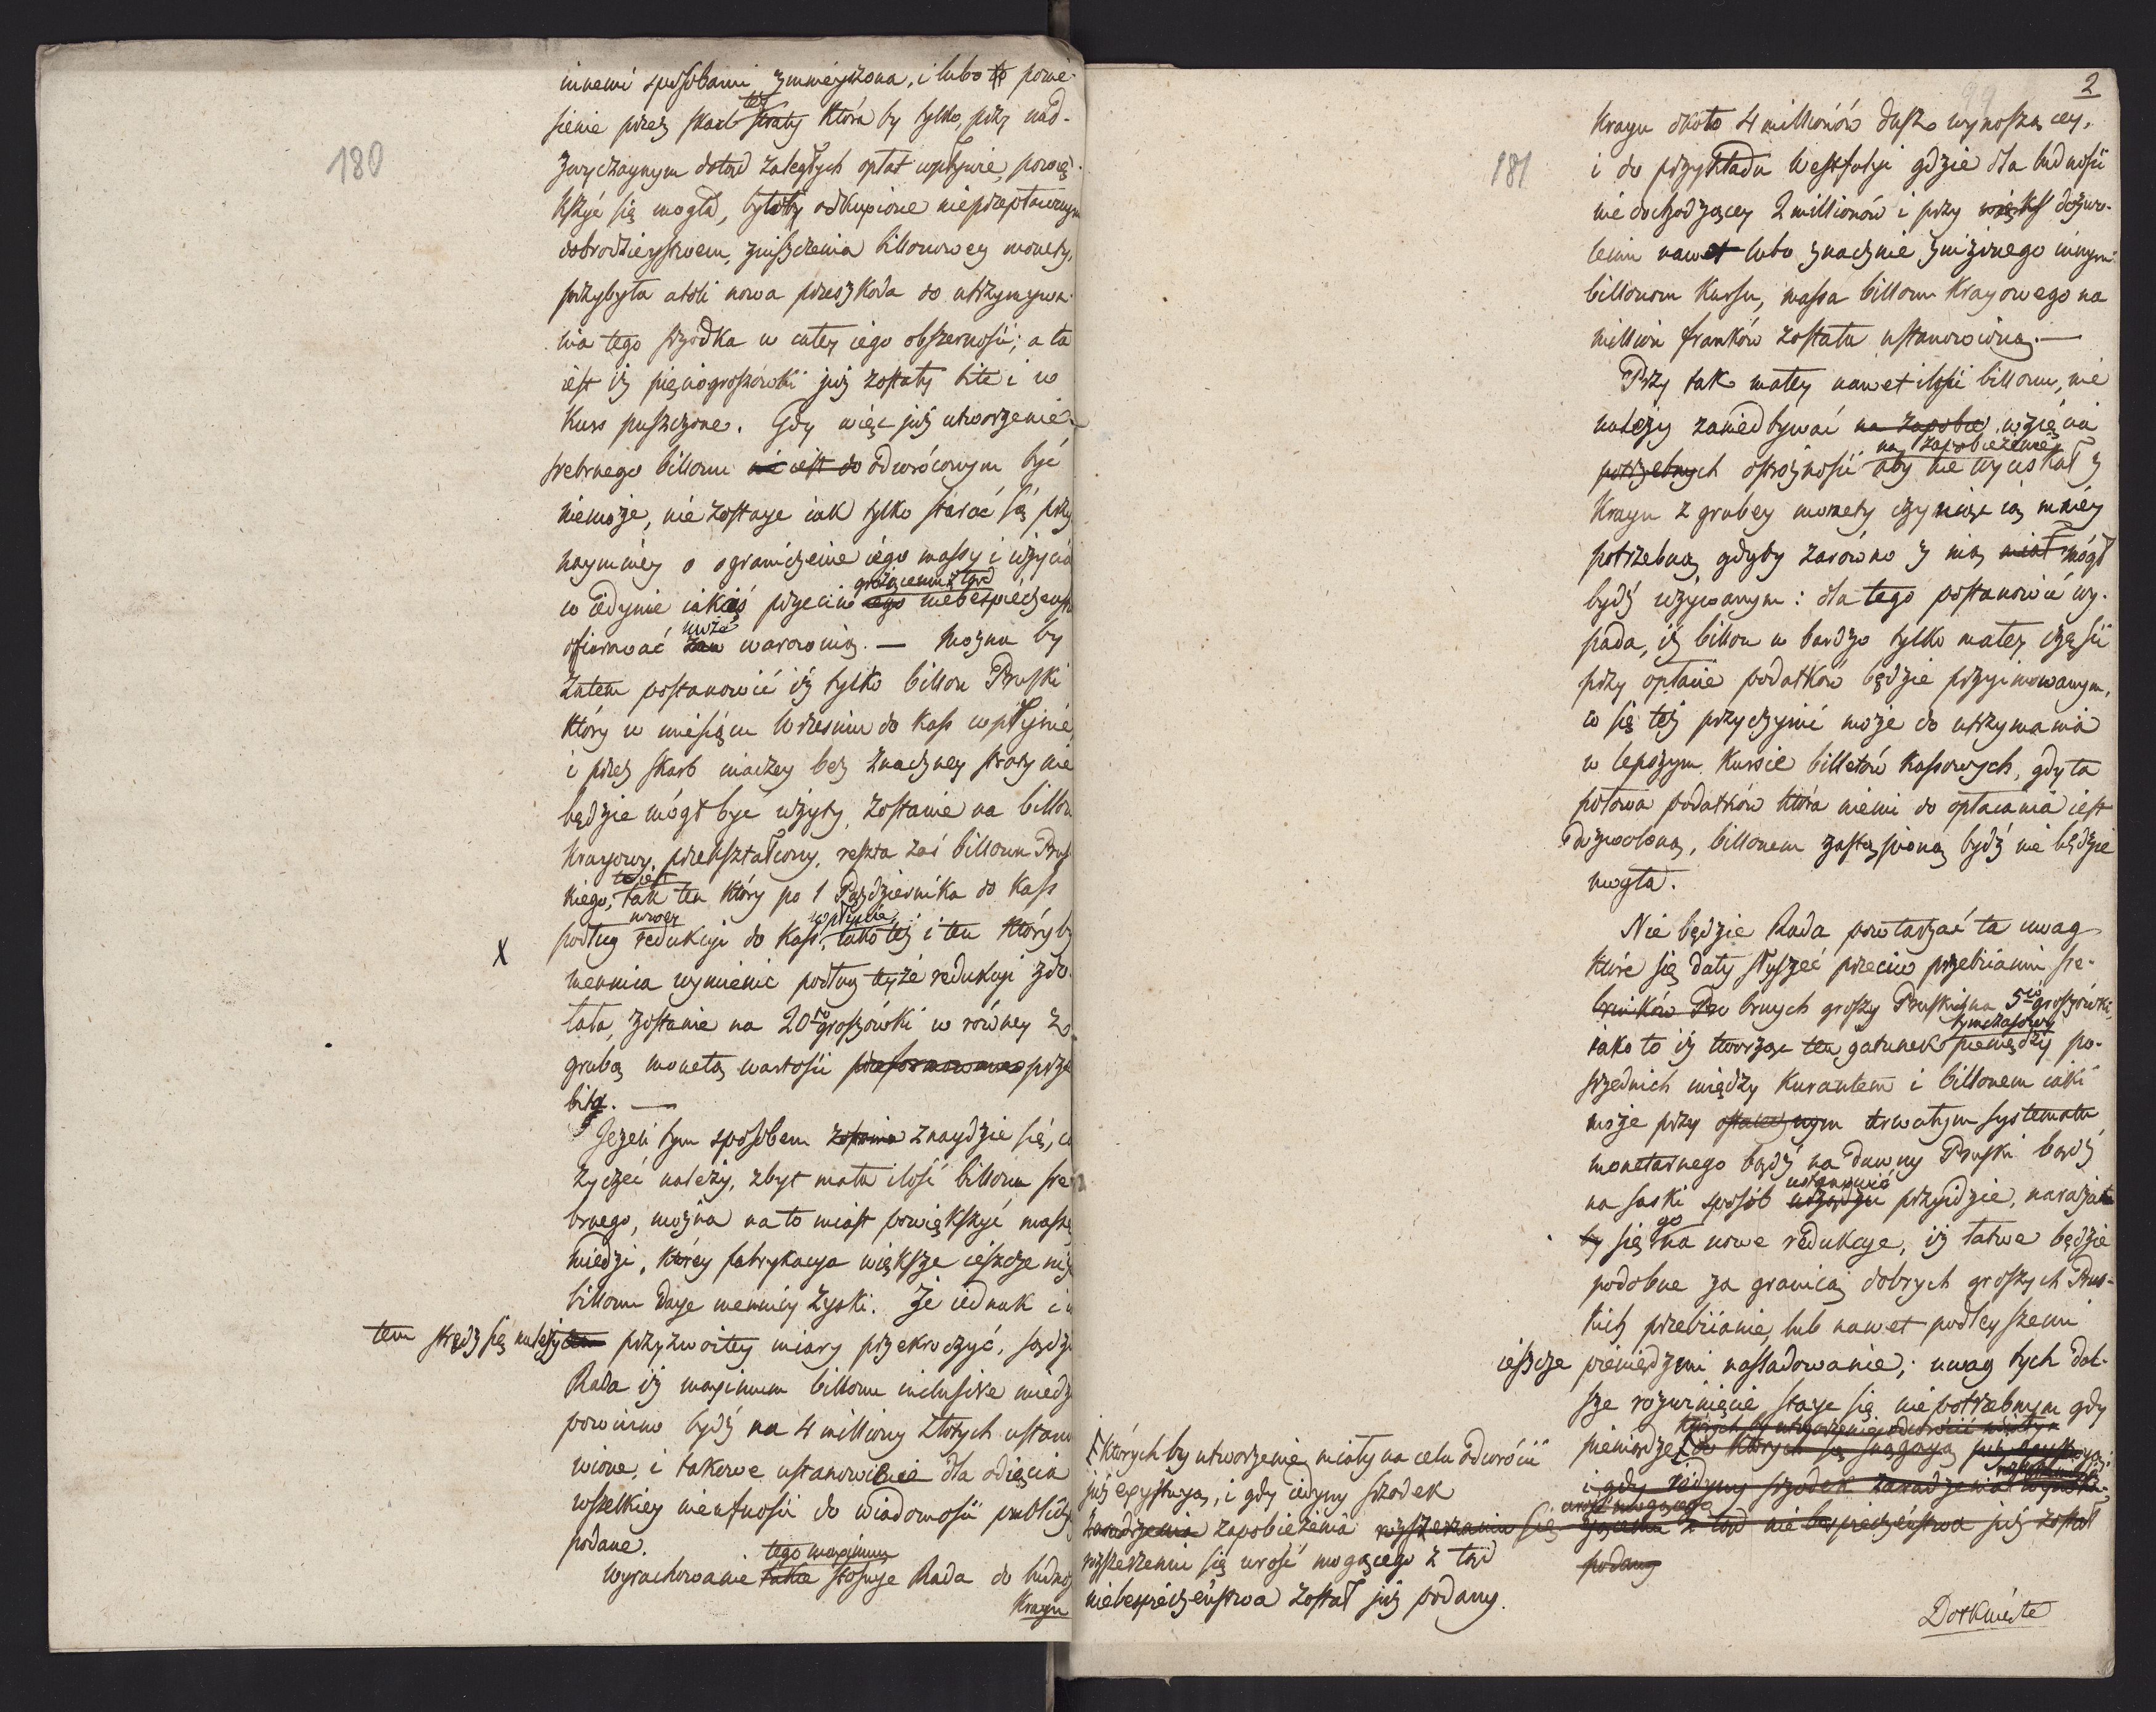 180
innemi sposobami zmnieyszona, i lubo to ponie-
sienie przez skarb tey straty która by tylko przy nad-
zwyczaynym dotąd zaległych opłat wpływie, powię-
kszyć się mogła, byłoby odkupione nieprzepłaconym
dobrodzieystwem, zniszczenia billonowey monety,
przybyła atoli nowa przeszkoda do utrzymywa-
nia tego szrodka w całey iego obszerności; a ta
iest iż pięciogroszówki już zostały bite i w
kurs puszczone. Gdy więc już utworzenie
srebrnego billonu nie iest do odwróconym być
niemoże, nie zostaye iak tylko starać się przy
naymniey o ograniczenie iego massy i użycia
co iedynie iakąś przeciw iego grożącemu z tąd niebespieczeństwu
ofiarować może warownią. — Można by
zatem postanowić iż tylko billon Pruski
który w miesiącu Wrześniu do kass wpłynie,
i przez skarb inaczey bez znaczney straty nie
będzie mógł być użyty, zostanie na billon
kraiowy, przekształcony, reszta zaś billonu Prus-
kiego, to iest tak ten który po 1 Pazdziernika do kass
X podług nowey redukcyi do kass, wpłynie, iako też i ten któryby
mennica wymienić podług teyże redukcyi zdo-
łała, zostanie na 20to groszówki w równey z
grubą monetą wartości przeformowana prze
bita. —
Jeżeli tym sposobem zostanie znaydzie się, co
życzeć należy, zbyt mała ilość billonu sre-
brnego, można na to miast powiększyć massę
miedzi, którey fabrykacya większe ieszcze niż
billonu daye mennicy zyski. Że iednak i w
tem strzedz się należy przyzwoitey miary przekroczyć, sądzi
Rada iż maximum billonu inclusive miedzi
powinno bydź na 4 milliony złotych ustano
wione, i takowe ustanowienie dla odięcia
wszelkiey nieufności do wiadomości publiczney
podane.
Wyrachowanie takie tego maximum stosuye Rada do ludności
kraju
2
181
kraju około 4 millionów dusz wynoszącey,
i do przykładu Westfalyi gdzie dla ludności
nie dochodzącey 2 millionów i przy więks dozwo-
leniu nawet lubo znacznie zniżonego innym
billonom kursu, massa billonu kraiowego na
million franków została ustanowioną. —
Przy tak małey nawet ilości billonu, nie
należy zaniedbywać na zapobie wzięcia
potrzebnych ostrożności na zapobieżenie aby nie wyciskał z
kraju z grubey monety czyniąc ią mniey
potrzebną gdyby zarówno z nią miał mógł
bydź używanym: dla tego postanowić wy-
pada, iż billon w bardzo tylko małey części
przy opłacie podatków będzie przyimowanym,
co się też przyczynić może do utrzymania
w lepszym kursie billetów kassowych, gdy ta
połowa podatków która niemi do opłacania iest
dozwolona, billonem zastąpioną bydź nie będzie
mogła.
Nie będzie Rada powtarzać ta uwag
które się dały słyszeć przeciw przebiianiu sre-
brników Pru brnych groszy Pruskich na 5cio groszówki,
iako to iż tworząc ten gatunek tymczasowy pieniędzy po-
srzednich między kurantem i billonem iaki
może przy ostatecznym trwałym systematu
monetarnego bądź na dawny Pruski bądź
na saski sposób urządzu ustanowić przyidzie, narażałe
by się go na nowe redukcye, iż łatwe będzie
podobne za granicą dobrych groszych Prus-
kich przebiianie, lub nawet podleyszemi
ieszcze pieniędzmi nasladowanie; uwag tych dal-
sze rozwinięcie staye się niepotrzebnym gdy
których by utworzenie odwrócić miały
pieniądze o których są już exystuyą,
i gdy iedyny szrodek zaradzenia
z tąd niebespieczeństwa już został
podany
[których by utworzenie miały na celu odwrócić
już exystuyą, i gdy iedyny szrodek
zaradzenia zapobieżenia rozszerzaniu się
rozszerzeniu się urość mogącego z tąd
niebespieczeństwa został już podany.
Dotkniete